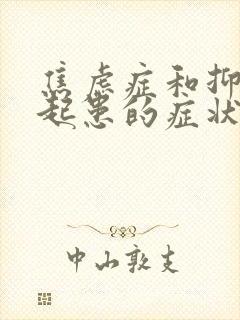 焦虑症和抑
起患的症状
中山敦支